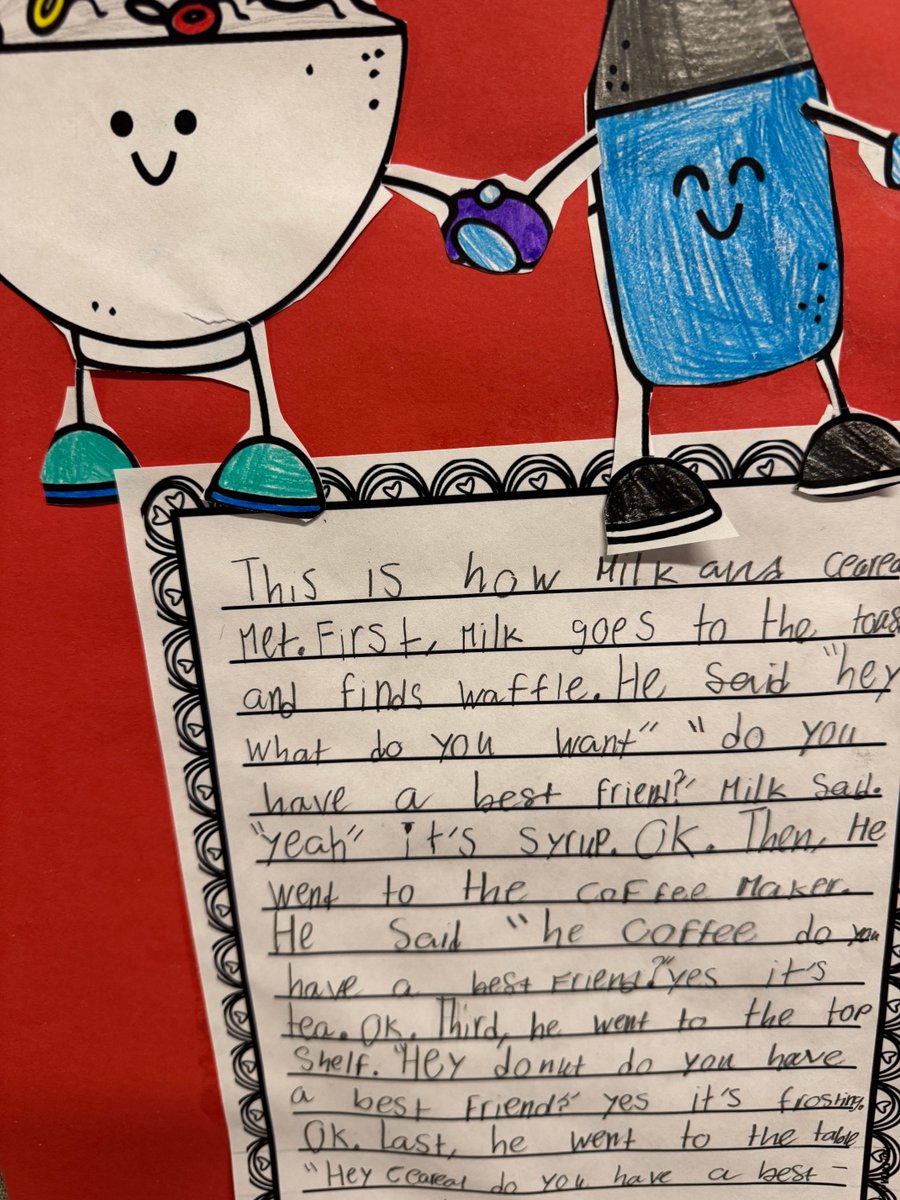 This is how Milk and
Met. First, Milk goes to the
and finds waffle. He said "hey
what do you want" "do you
have a best friend?" Milk said.
"yeah" it's syrup. Ok. Then, He
went to the coffee Maker.
He said "he coffee do you
have a best Friend?" yes it's
tea. Ok. Third, he went to the top
shelf. "Hey donut do you have
a best Friend?" yes it's frosting.
Ok. Last, he went to the table
"Hey ceareal do you have a best-